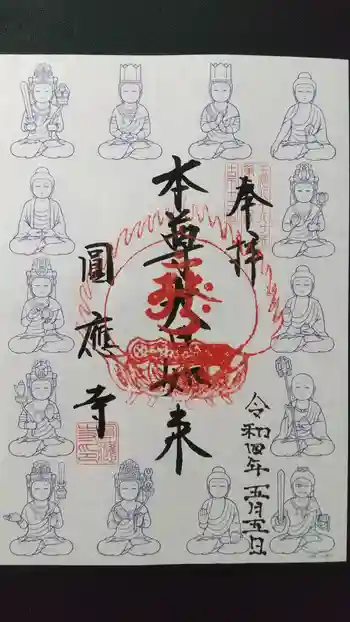 奉拝
本尊大日如来
圓應寺
令和四年五月五日